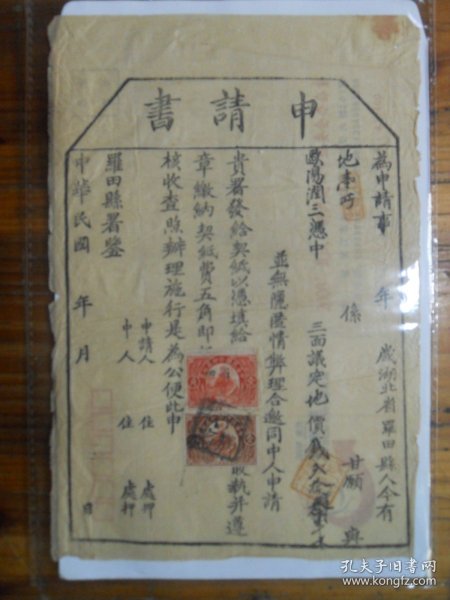 申請書
為申請事 年 歲湖北省羅田縣人今有
地 係 甘願 與
歐陽潤三憑中 三面議定地價錢
並無隱匿情弊理合邀同中人申請
貴署發給契紙以憑填給 執并遵
章繳納契紙費五角即
核收查照辦理施行是為公便此申
羅田縣署鑒 申請人 住 處押
中人 住 處押
中華民國 年 月 日
孔夫子旧书网
www.kongfz.com